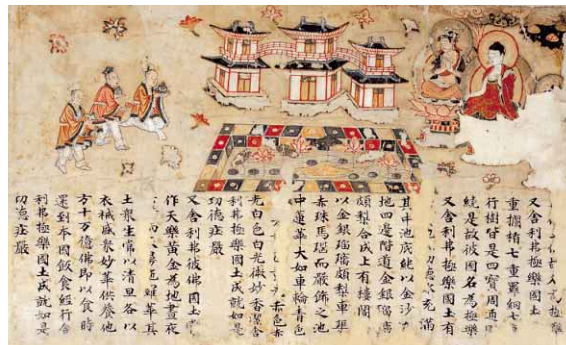 又舍利弗極樂國土
重攔楯七重羅網七
行樹皆是四寶周迊
繞是故彼國名為極樂
又舍利弗極樂國土有
功德水充滿
其中池底純以金沙
地四邊階道金銀瑠璃
頗梨合成上有樓閣
以金銀瑠璃頗梨車璖
赤珠馬瑙而嚴飾之池
中蓮華大如車輪青色
赤色赤
光白色白光微妙香潔舍
利弗極樂國土成就如是
功德莊嚴
又舍利弗彼佛國土
作天樂黃金為地晝夜
而雨曼羅華其
土衆生常以清旦各以
衣裓盛衆妙華供養他
方十万億佛即以食時
還到本國飯食經行舍
利弗極樂國土成就如是
功德莊嚴